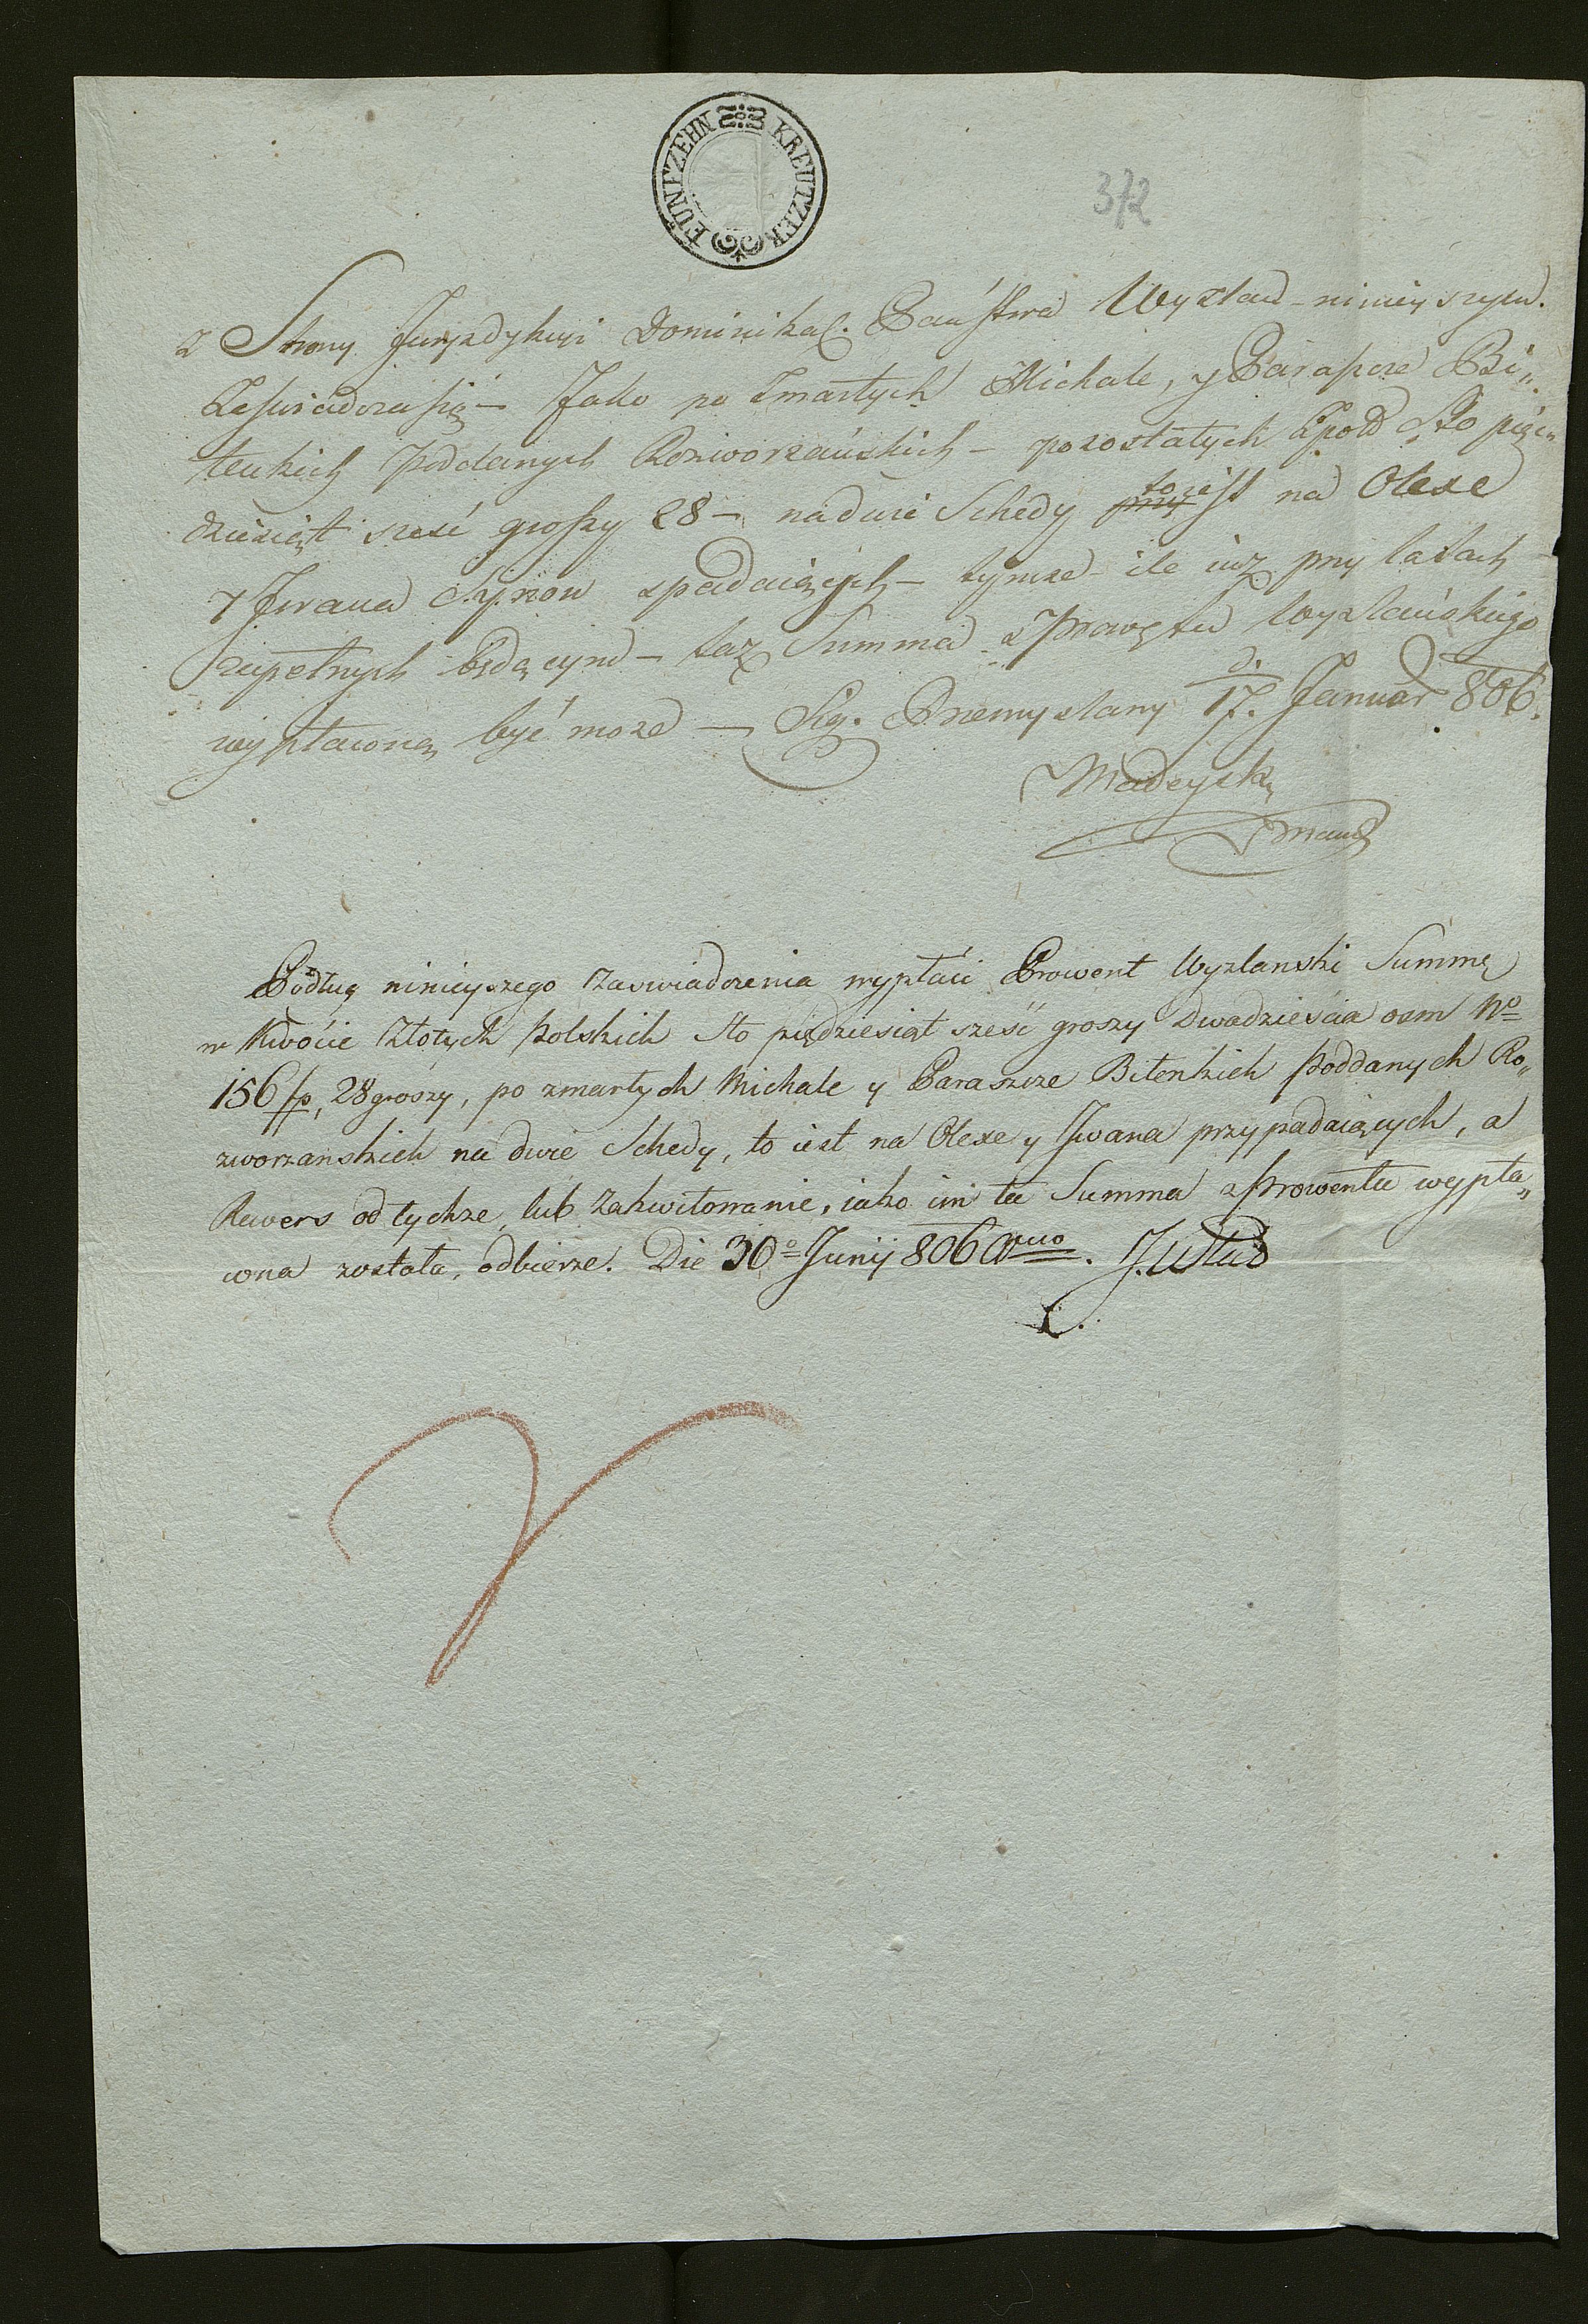 FÜNFZEHN KREUTZER
372
z Strony Juryzdykcyi Dominikal. Państwa Wyzlan ninieyszym.
Zaswiadcza się — Jako po Zmarłych Michale, y Paraszce Bi„
tenkich Poddanych Rozworzańskich — pozostałych Zpold Sto pięć„
dziesiąt sześć groszy 28 — na dwie Schedy to iest na Olexe
y Jwana Synow spadaiących — tymże ile iuż przy latach
zupełnych będącym — taż Summa z Prowętu Wyzlańskiego
wypłaconą być może — Sig. Przemyslany d. 17. Januar 806.
Madeyski
Mand
Podług ninieyszego Zaswiadczenia wypłaci Prowent Wyzlanski Summę
w Kwocie Złotych Polskich Sto piędziesiąt sześć groszy Dwadzieścia osm No
156 fp, 28 groszy, po zmarłych Michale y Paraszce Bitenkich poddanych Ro„
zworzanskich na dwie Schedy, to iest na Olexe y Jwana przypadaiących, a
Rewers od tychze, lub Zakwitowanie, iako im ta Summa z Prowentu wypła„
cona została, odbierze. Die 30o Junij 806 Anno.